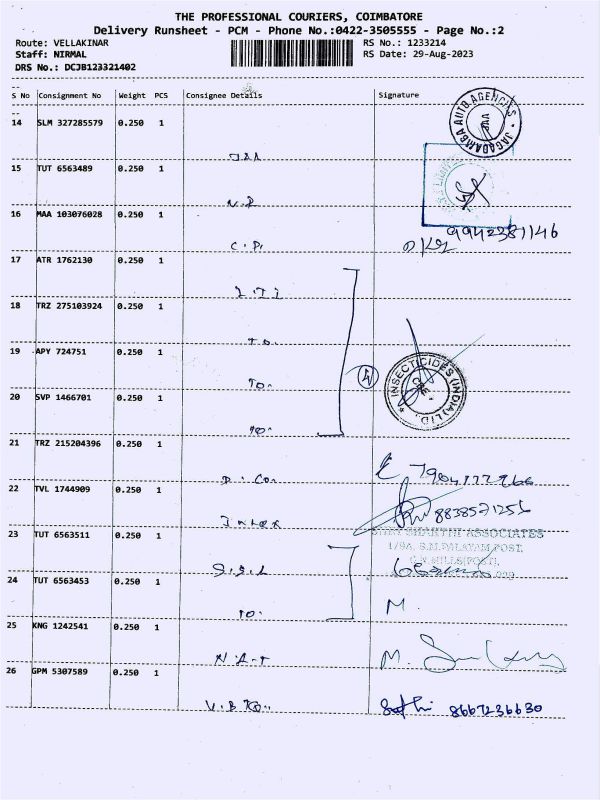 THE PROFESSIONAL COURIERS, COIMBATORE
Delivery Runsheet - PCM - Phone No.:0422-3505555 - Page No.:2
Route: VELLAKINAR
RS No.: 1233214
Staff: NIRMAL
RS Date: 29-Aug-2023
DRS No.: DCJB123321402
S No Consignment No Weight PCS Consignee Details Signature
14 SLM 327285579 0.250 1
JAGADAMBA AUTO AGENCIES
15 TUT 6563489 0.250 1
N.P
16 MAA 103076028 0.250 1
9942381146
C.P.
17 ATR 1762130 0.250 1
I.T.I
18 TRZ 275103924 0.250 1
To.
19 APY 724751 0.250 1
INSECTICIDES (INDIA) LTD.
CBE
4
To.
20 SVP 1466701 0.250 1
To.
21 TRZ 215204396 0.250 1
D. Co.
22 TVL 1744909 0.250 1
8838571255
23 TUT 6563511 0.250 1
SHAKTHI ASSOCIATES
1/9A, S.M.PALAYAM POST,
G.N.MILLS(POST),
S.S.L
24 TUT 6563453 0.250 1
M.
To.
25 KNG 1242541 0.250 1
N.A.T
M.
26 GPM 5307589 0.250 1
8667236630